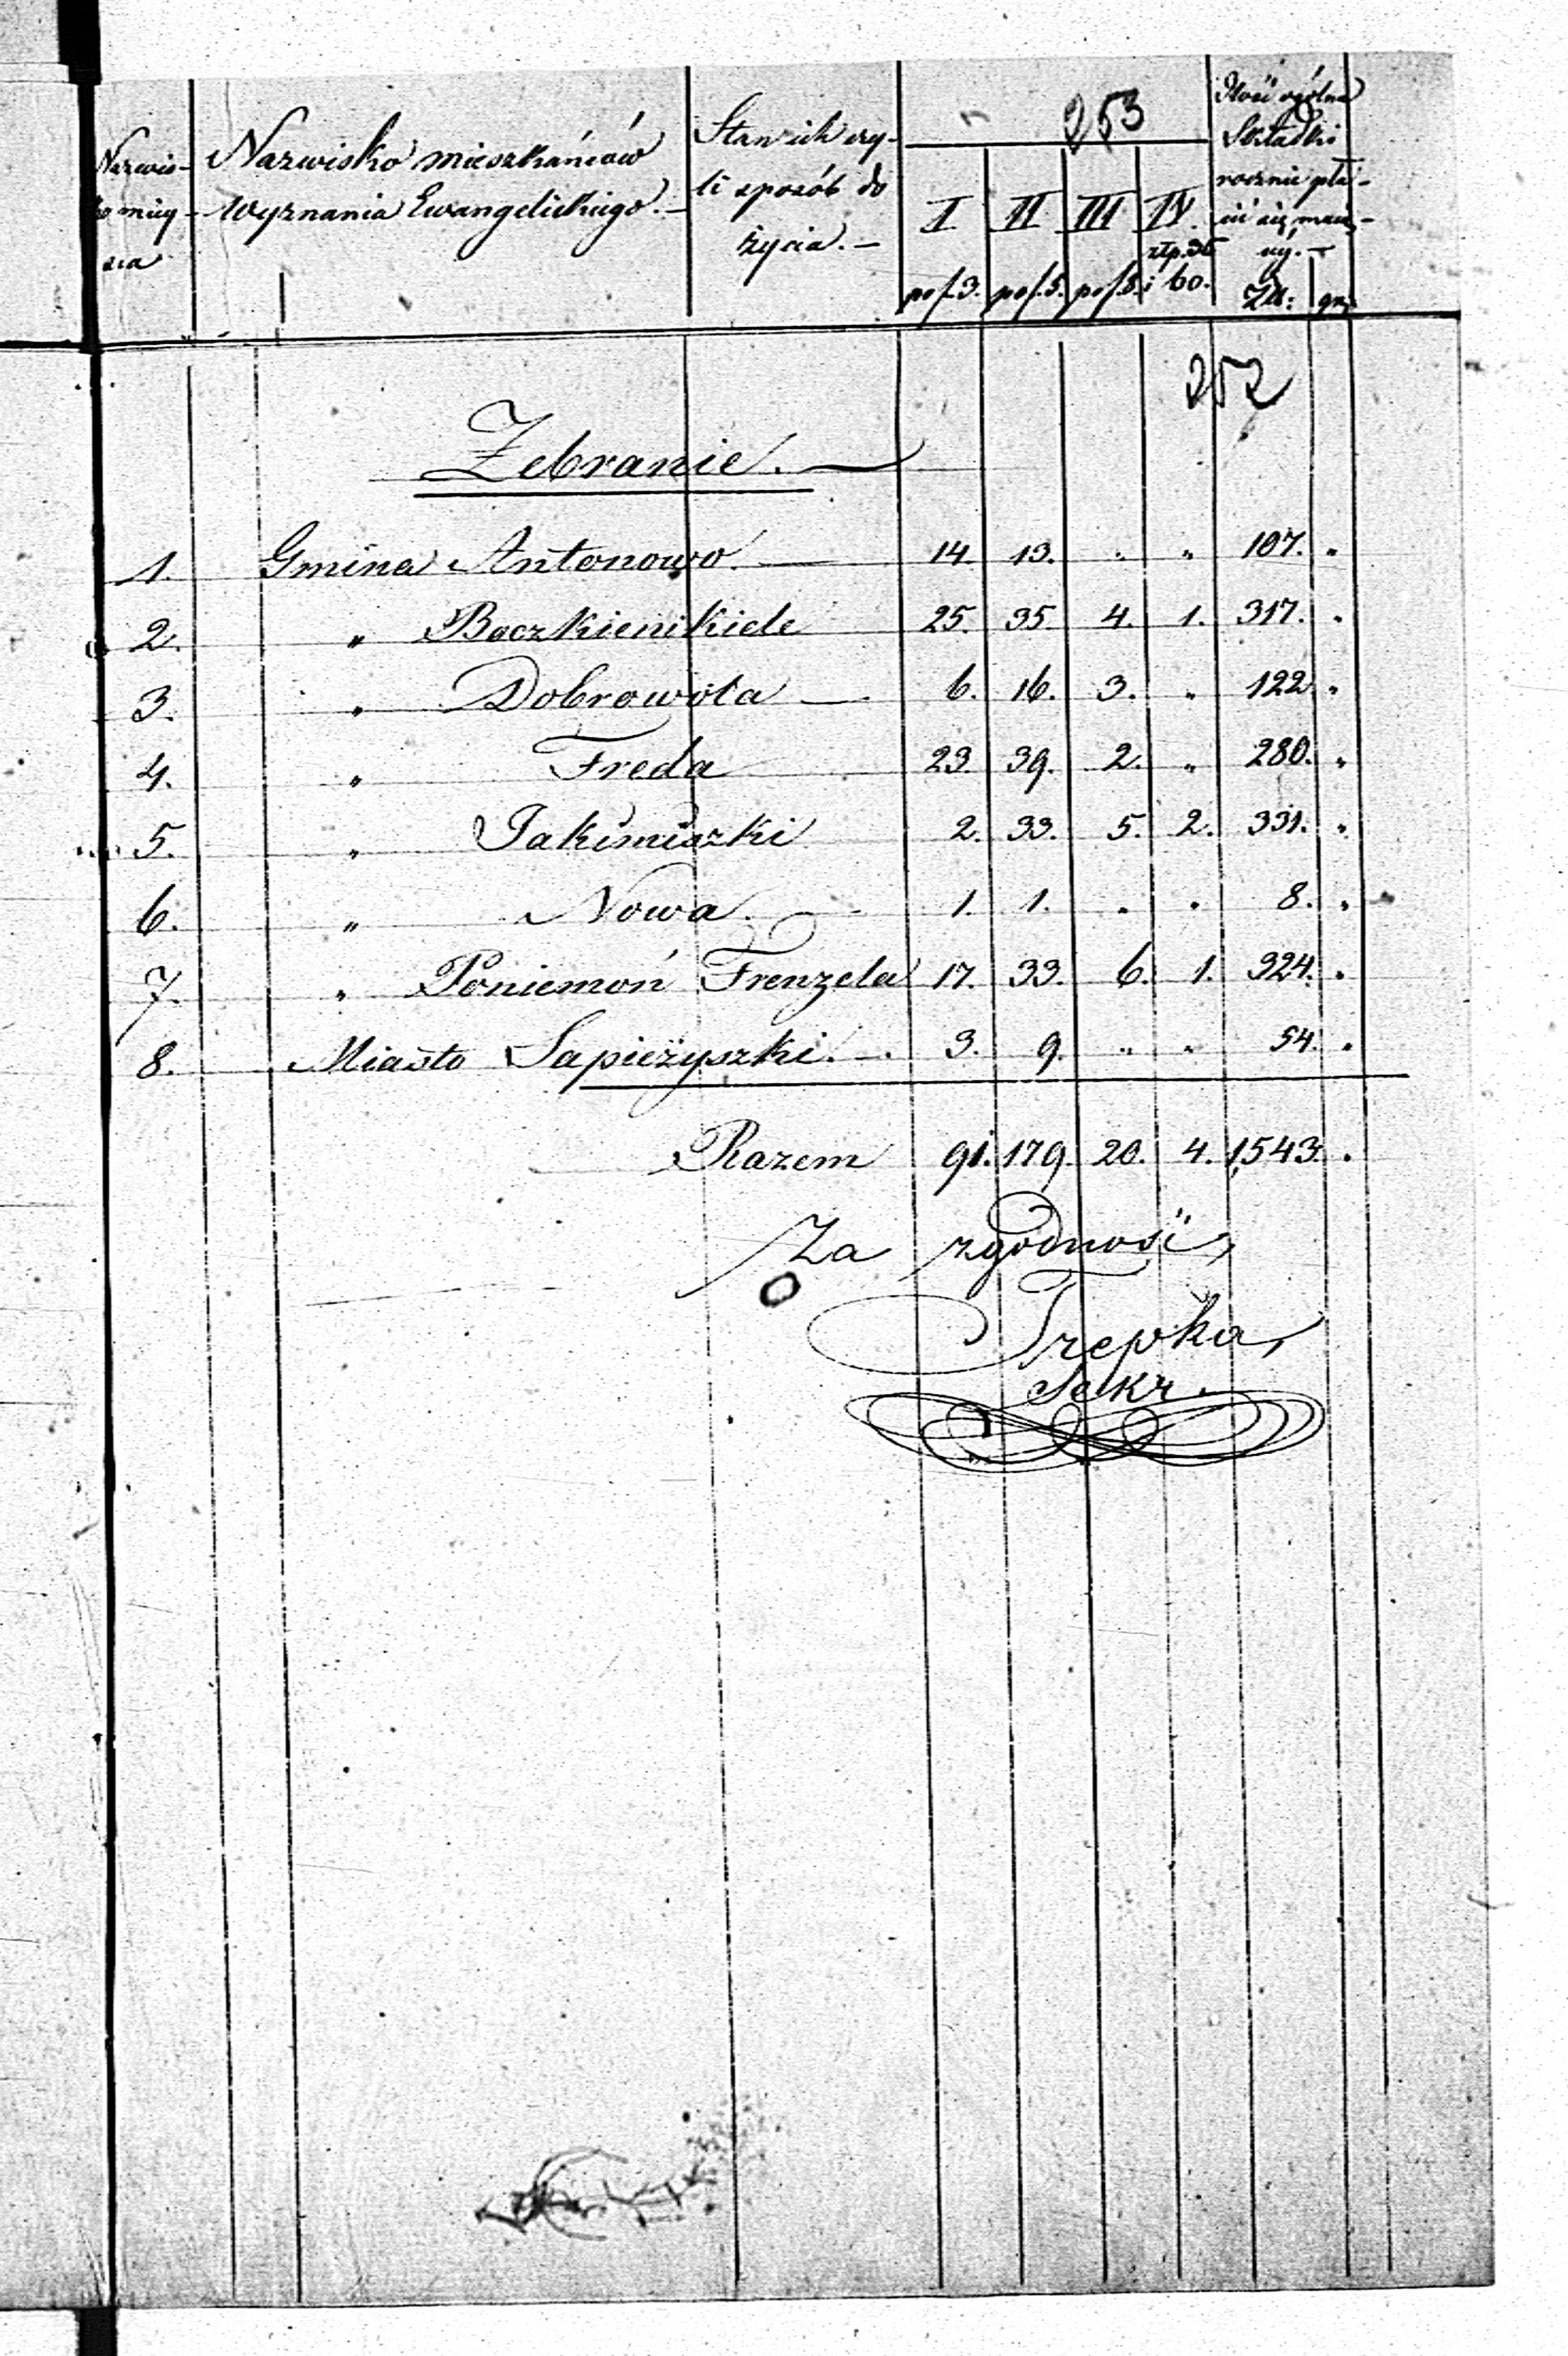 253
Nazwis- Nazwisko mieszkańców Stan ich czy- Ilość ogólna
ko miey- Wyznania Ewangelickiego.- li sposób do Składki
sca życia.- rocznie pła-
I. II III IV. cić się maią-
złp. 36 cy.-
po f. 3. po f. 5. po f. 8. i 60. Złt: gr:
252
Zebranie.
1. Gmina Antonowo. 14. 13. " " 107. "
2. " Boczkieni kiele 25. 35. 4. 1. 317. "
3. " Dobrowola 6. 16. 3. " 122 "
4. " Freda 23. 39. 2. " 280. "
5. " Jakimiszki 2. 33. 5. 2. 331. "
6. " Nowa. 1. 1. " " 8. "
7. " Poniemoń Frenzela 17. 33. 6. 1. 324. "
8. Miasto Sapieżyszki. 3. 9. " " 54. "
Razem 91. 179. 20. 4. 1,543. "
Za zgodność
Trepka
Sekr.